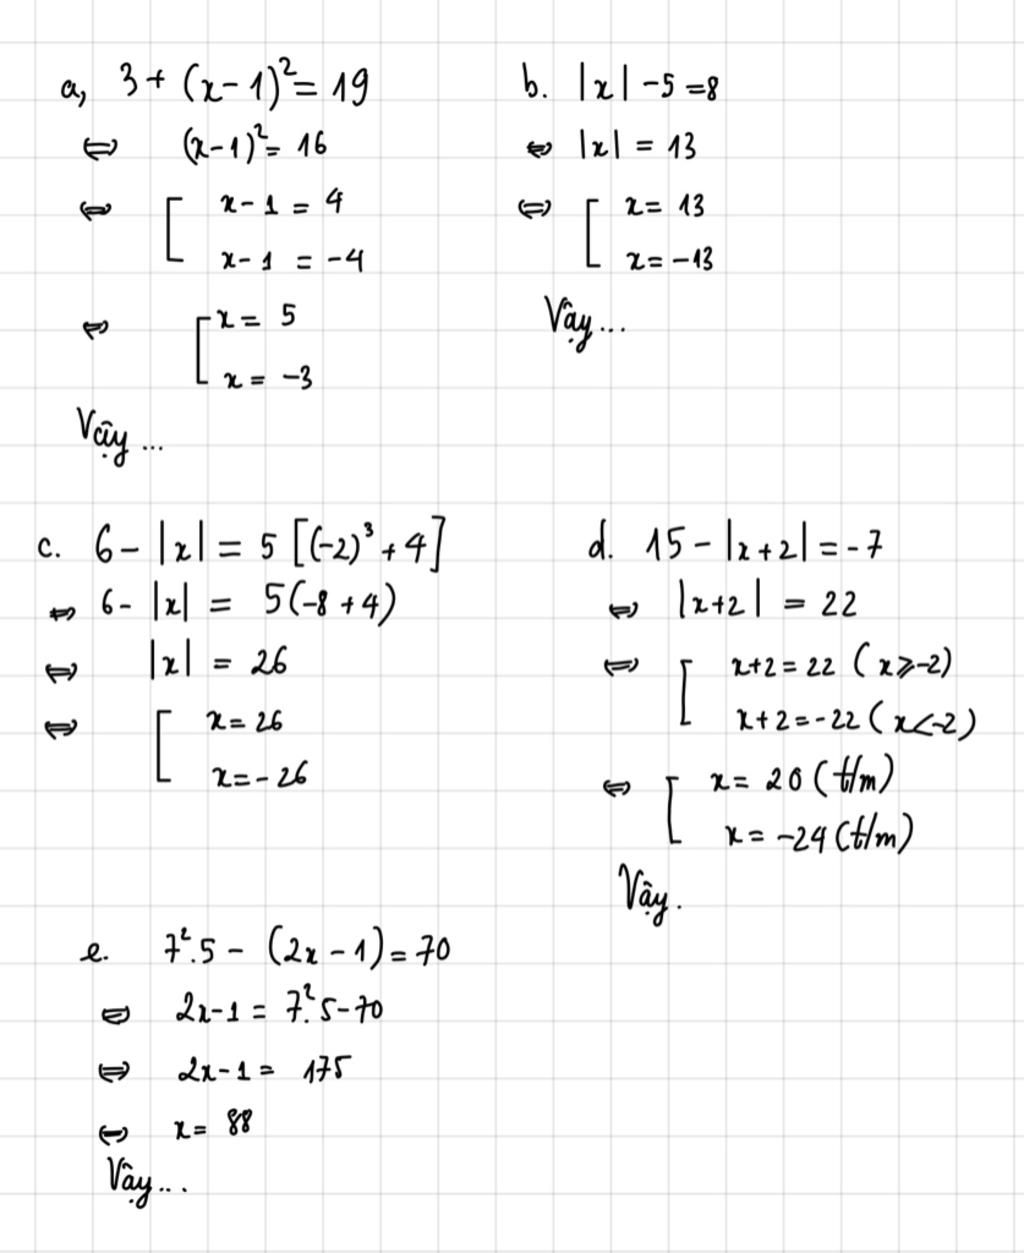 a, 3 + (x-1)² = 19
⇔ (x-1)² = 16
⇔ [ x-1 = 4
x-1 = -4
⇔ [ x = 5
x = -3
Vậy ...
b. |x| - 5 = 8
⇔ |x| = 13
⇔ [ x = 13
x = -13
Vậy ...
c. 6 - |x| = 5 [(-2)³ + 4]
⇔ 6 - |x| = 5(-8 + 4)
⇔ |x| = 26
⇔ [ x = 26
x = -26
d. 15 - |x + 2| = -7
⇔ |x+2| = 22
⇔ [ x+2 = 22 (x ⩾ -2)
x+2 = -22 (x < -2)
⇔ [ x = 20 (t/m)
x = -24 (t/m)
Vậy.
e. 7².5 - (2x - 1) = 70
⇔ 2x-1 = 7².5-70
⇔ 2x-1 = 175
⇔ x = 88
Vậy...